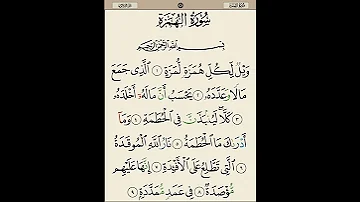 سُورَةُ الْهُمَزَةِ
بِسْمِ اللَّهِ الرَّحْمَٰنِ الرَّحِيمِ
وَيْلٌ لِّكُلِّ هُمَزَةٍ لُّمَزَةٍ ١ ٱلَّذِي جَمَعَ
مَالًا وَعَدَّدَهُۥ ٢ يَحْسَبُ أَنَّ مَالَهُۥٓ أَخْلَدَهُۥ
٣ كَلَّا لَيُنۢبَذَنَّ فِي ٱلْحُطَمَةِ ٤ وَمَآ
أَدْرَىٰكَ مَا ٱلْحُطَمَةُ ٥ نَارُ ٱللَّهِ ٱلْمُوقَدَةُ
٦ ٱلَّتِي تَطَّلِعُ عَلَى ٱلْأَفْـِٔدَةِ ٧ إِنَّهَا عَلَيْهِم
مُّؤْصَدَةٌ ٨ فِي عَمَدٍ مُّمَدَّدَةٍۭ ٩